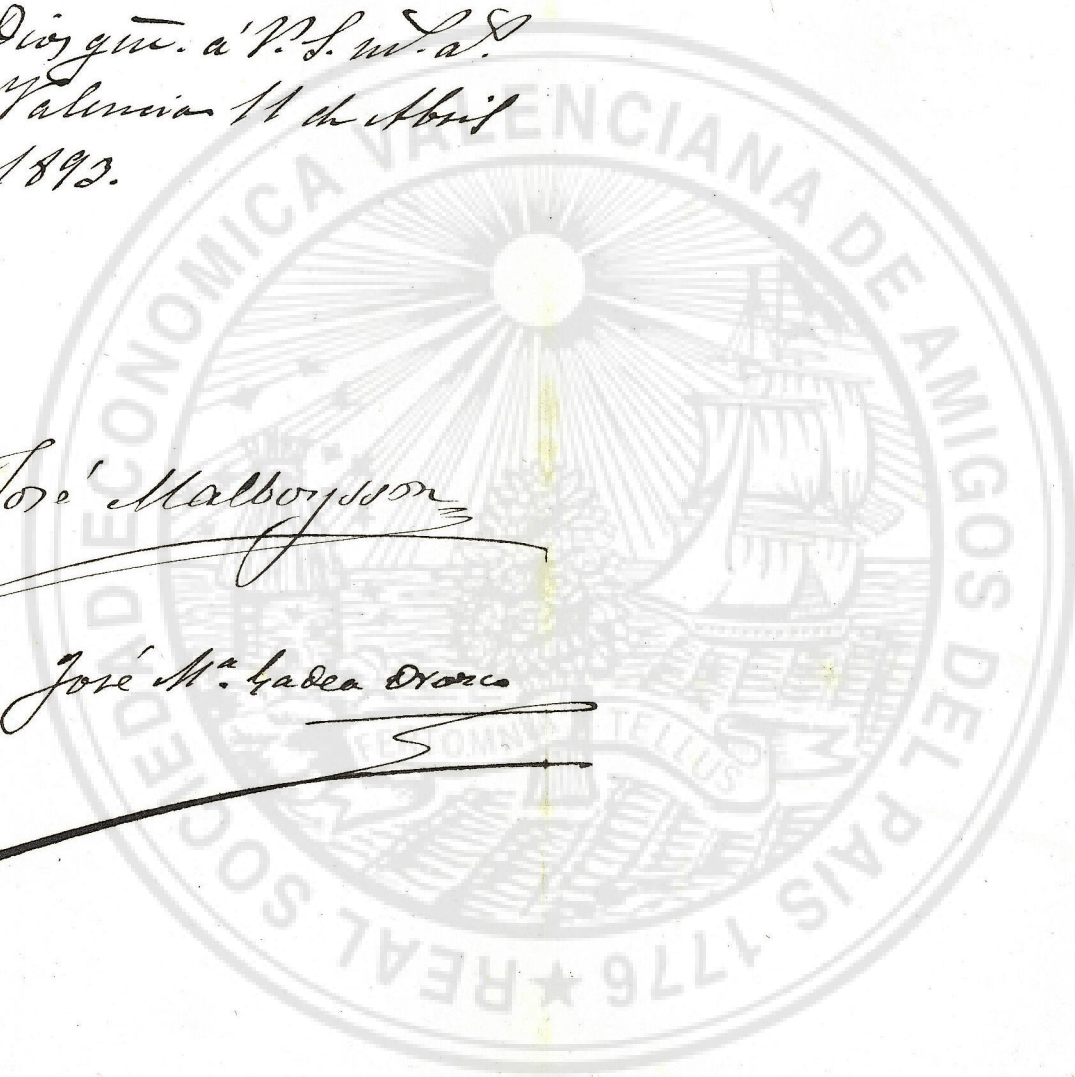 Dios gue. á V. S. ms. as.
Valencia 11 de Abril
1893.
José Malboysson
José Mª. Gadea Orozco
REAL SOCIEDAD ECONOMICA VALENCIANA DE AMIGOS DEL PAIS 1776 ★